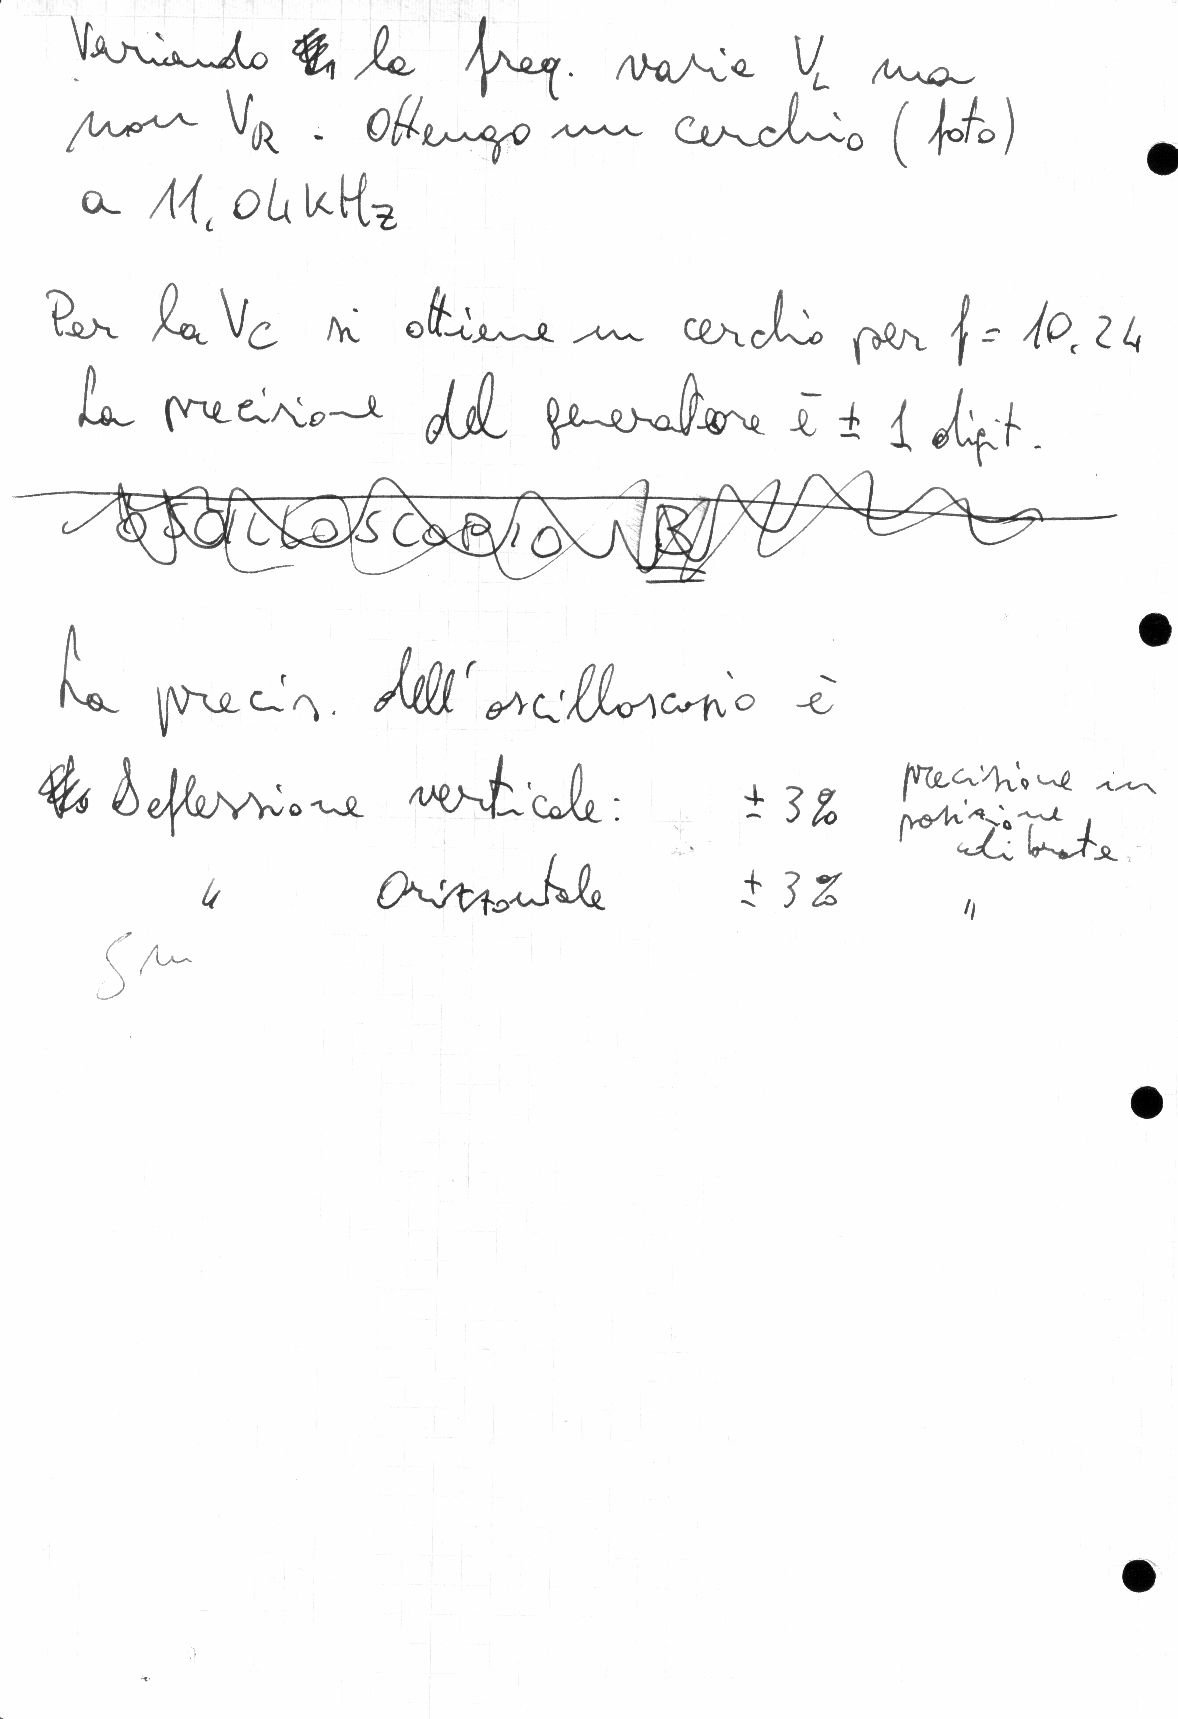 Variando la freq. varia VL ma
non VR. Ottengo un cerchio (foto)
a 11,04 kHz
Per la VC si ottiene un cerchio per f = 10,24
La precisione del generatore è ± 1 digit.
OSCILLOSCOPIO B
La precis. dell'oscilloscopio è
Deflessione verticale: ± 3% precisione in
posizione
calibrata
" Orizzontale ± 3% "